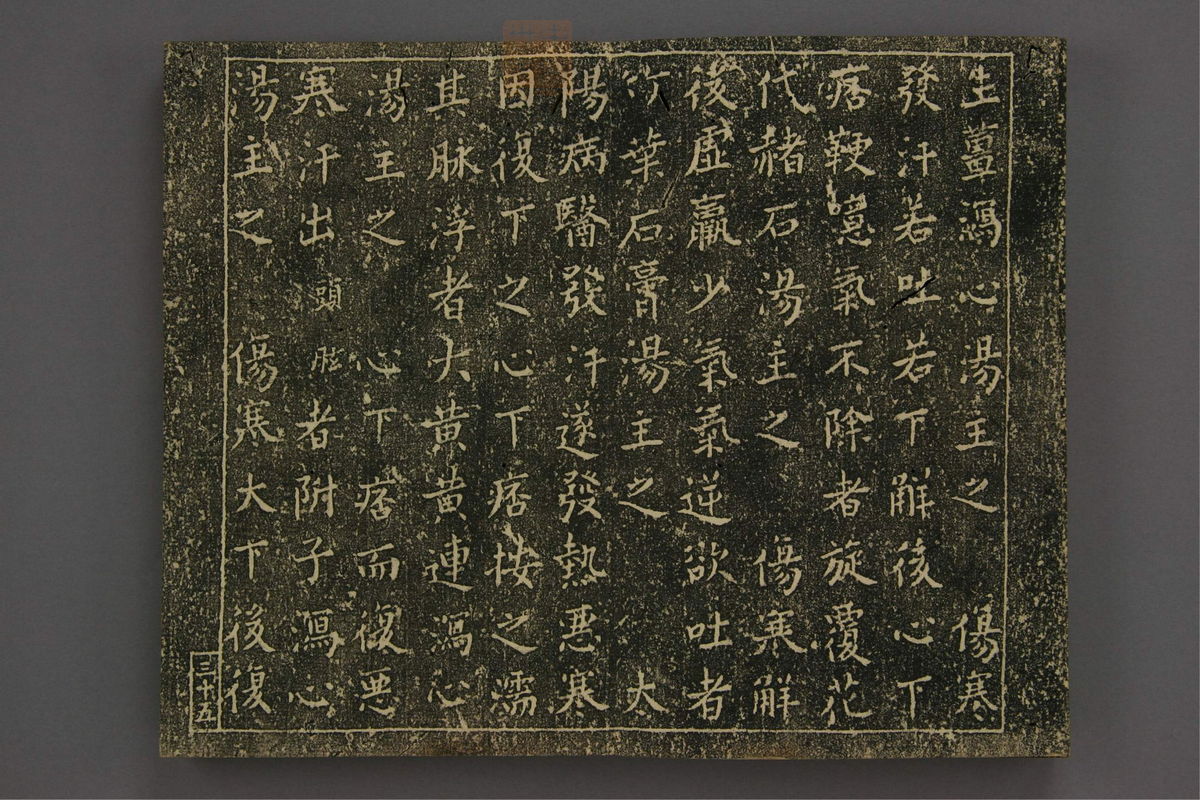 生薑瀉心湯主之　傷寒
發汗若吐若下觧後心下
痞鞕噫氣不除者旋覆花
代赭石湯主之　傷寒觧
後虛羸少氣氣逆欲吐者
竹葉石膏湯主之　大
陽病醫發汗遂發熱惡寒
因復下之心下痞按之濡
其脉浮者大黄黄連瀉心
湯主之　心下痞而復惡
寒汗出頭眩者附子瀉心
湯主之　傷寒大下後復
三十五